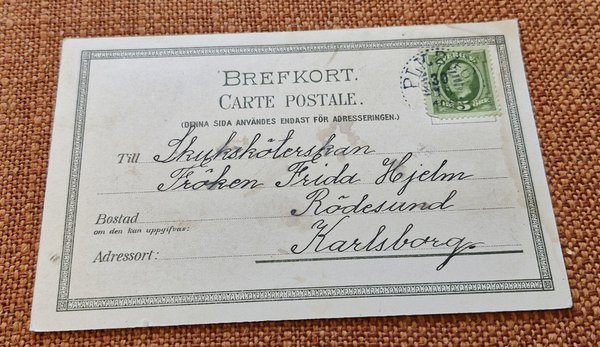 BREFKORT.
CARTE POSTALE.
(DENNA SIDA ANVÄNDES ENDAST FÖR ADRESSERINGEN.)
Till Skuksköterskan
Fröken Frida Hjelm
Bostad Rödesund
om den kan uppgifvas:
Adressort: Karlsborg.
5 ÖRE